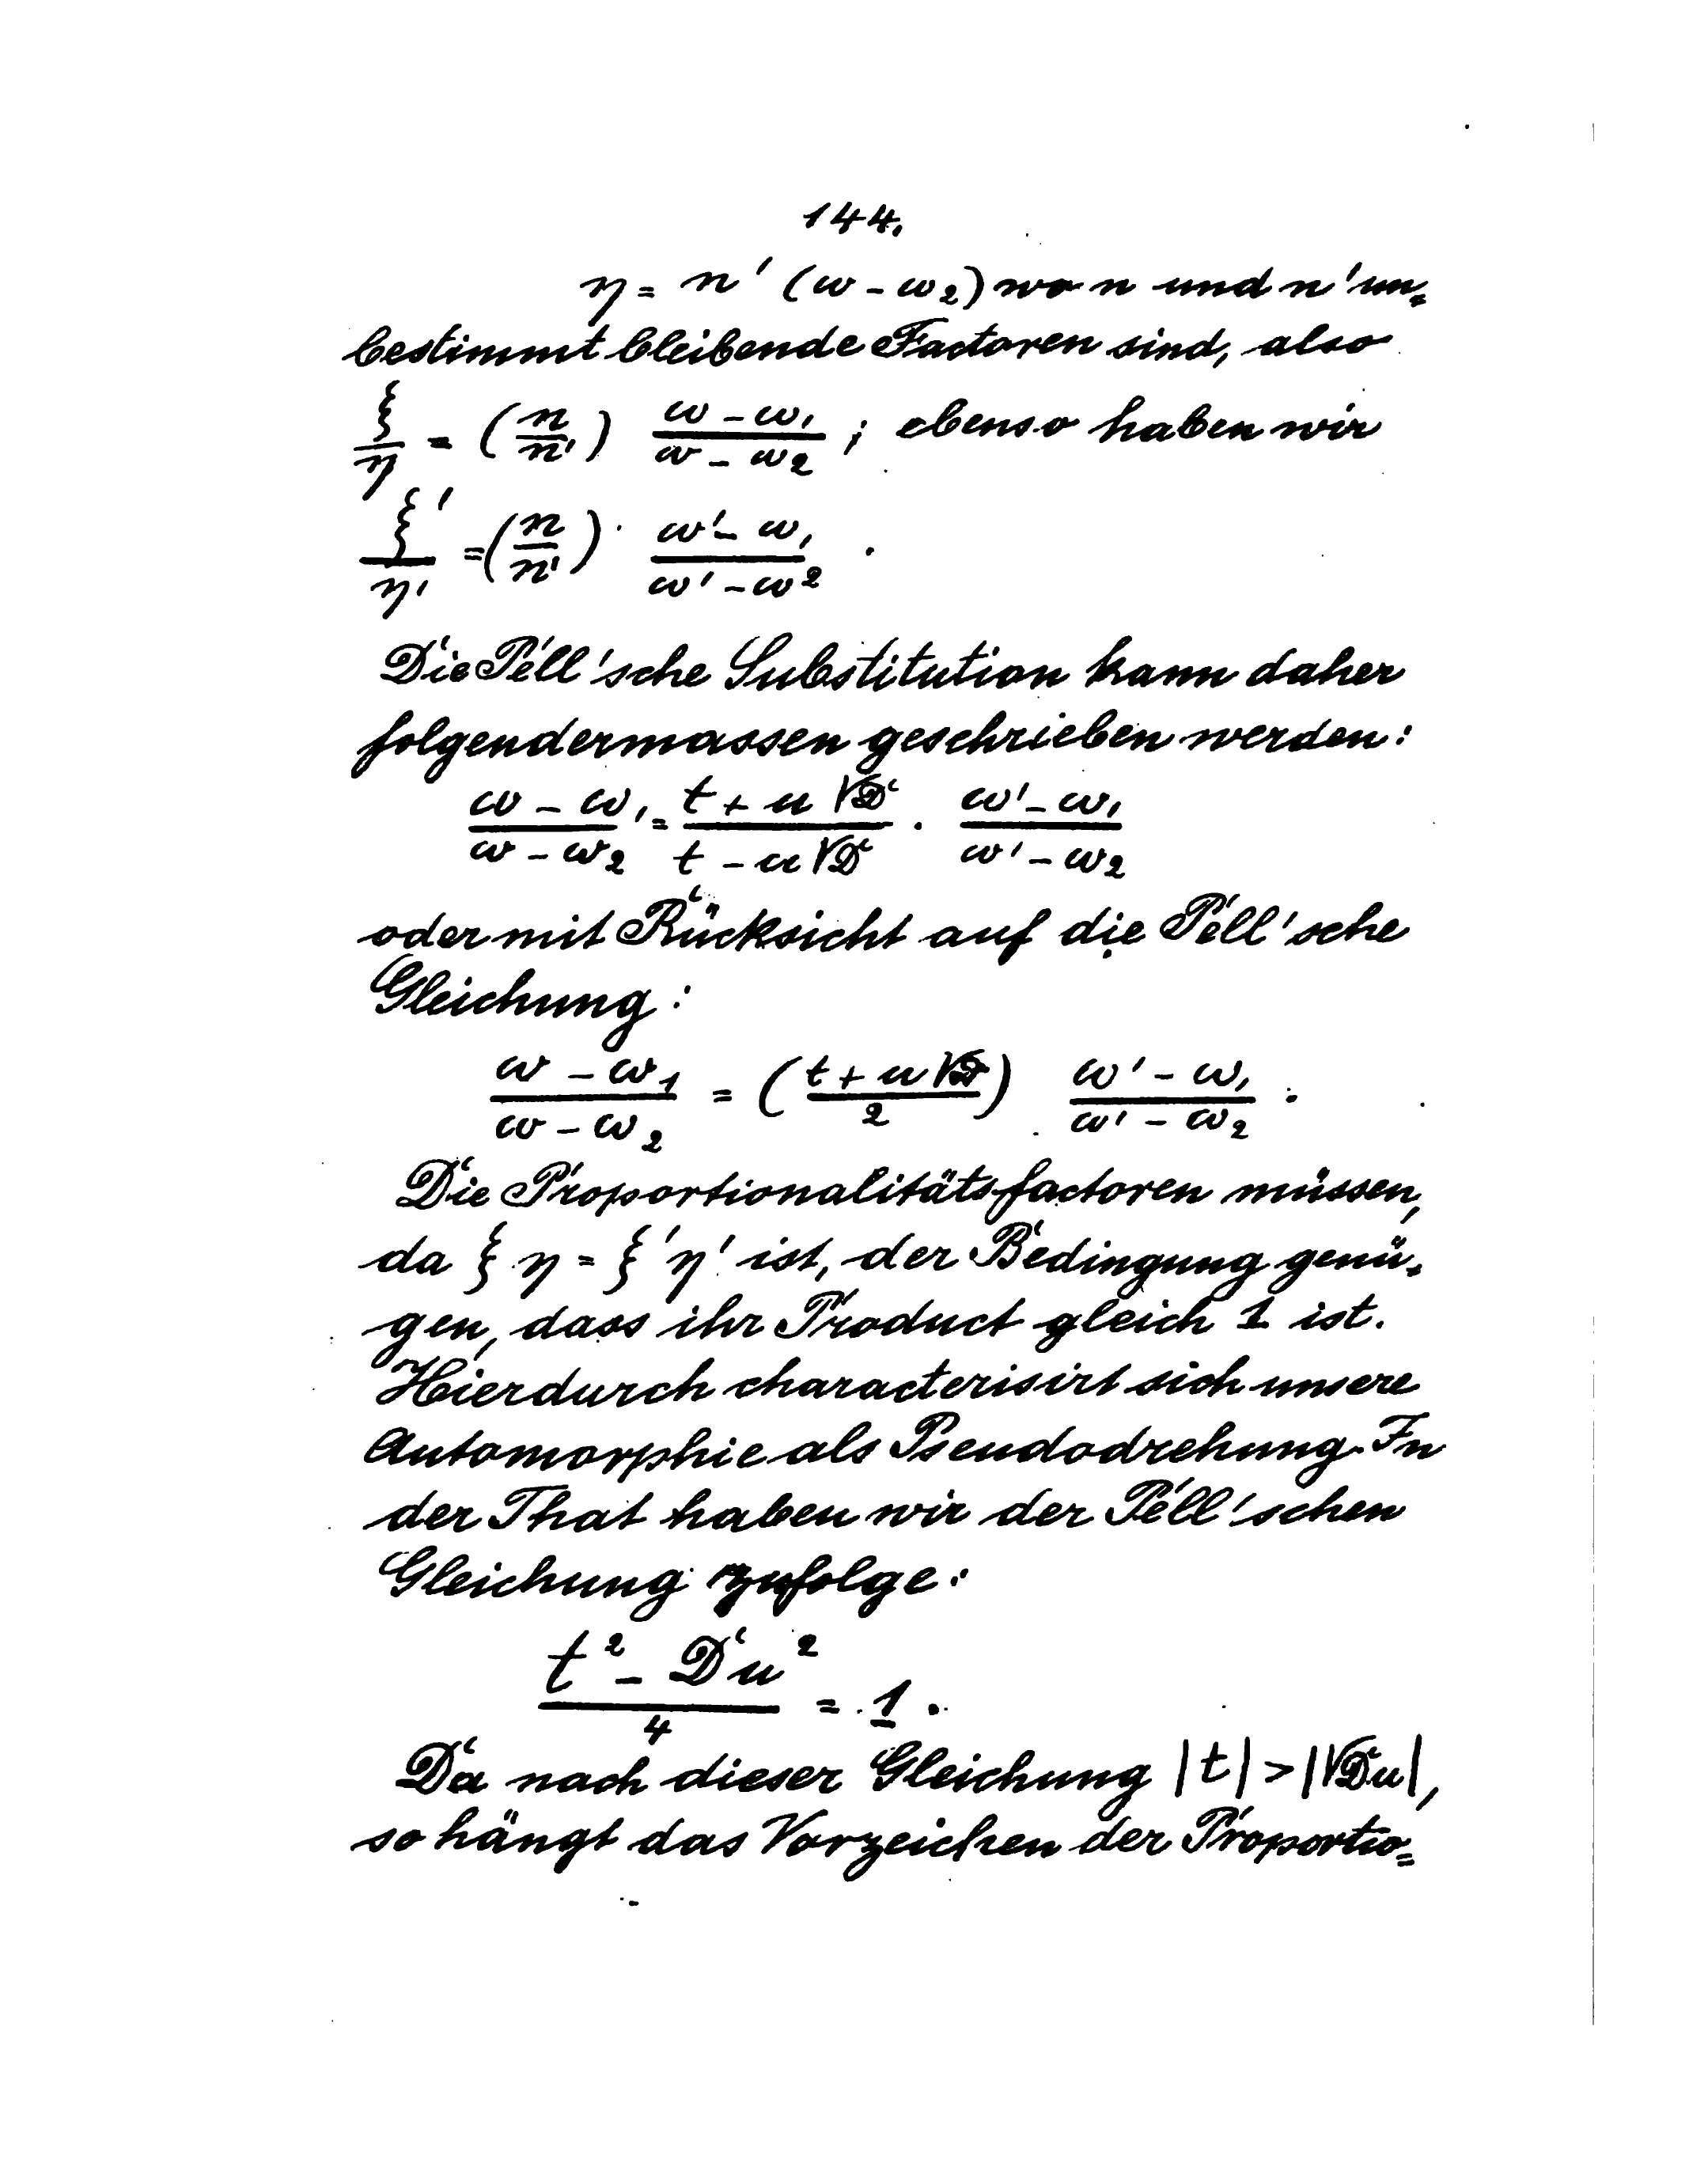 144.
η = n' (ω - ω₂) wo n und n' un=
bestimmt bleibende Factoren sind, also
ξ/η = (n/n') (ω - ω₁)/(ω - ω₂) ; ebenso haben wir
ξ'/η' = (n/n') · (ω' - ω₁)/(ω' - ω²) .
Die Pell'sche Substitution kann daher
folgendermassen geschrieben werden:
(ω - ω₁)/(ω - ω₂) = (t + u √D)/(t - u √D) · (ω' - ω₁)/(ω' - ω₂)
oder mit Rücksicht auf die Pell'sche
Gleichung:
(ω - ω₁)/(ω - ω₂) = ((t + u √D)/2) (ω' - ω₁)/(ω' - ω₂) .
Die Proportionalitätsfactoren müssen,
da ξ η = ξ' η' ist, der Bedingung genü=
gen, dass ihr Product gleich 1 ist.
Hierdurch characterisirt sich unsere
Automorphie als Pseudodrehung. In
der That haben wir der Pell'schen
Gleichung zufolge:
(t² - Du²)/4 = 1 .
Da nach dieser Gleichung |t| > |√Du|,
so hängt das Vorzeichen der Proportio=